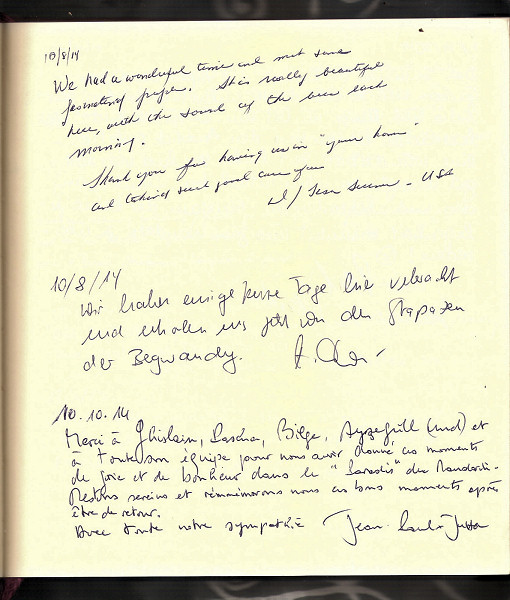 10/8/14
We had a wonderful time and met some
fascinating people. It is really beautiful
here, with the sound of the each
morning.
Thank you for having us in "your home"
and taking such good care of us
- USA
10/8/14
Wir haben einige Tage hier verbracht
und erholen uns jetzt von den Strapazen
der
10.10.14
Merci à Ghislain, Sascha, Bilge, Ayşegüll (und) et
à toute son équipe pour nous avoir donné ces moments
de joie et de bonheur dans le "Paradis" du Mandarin.
Restons sereins et remémorons nous ces bons moments après
être de retour.
Avec toute notre sympathie Jean-Paul + Jutta